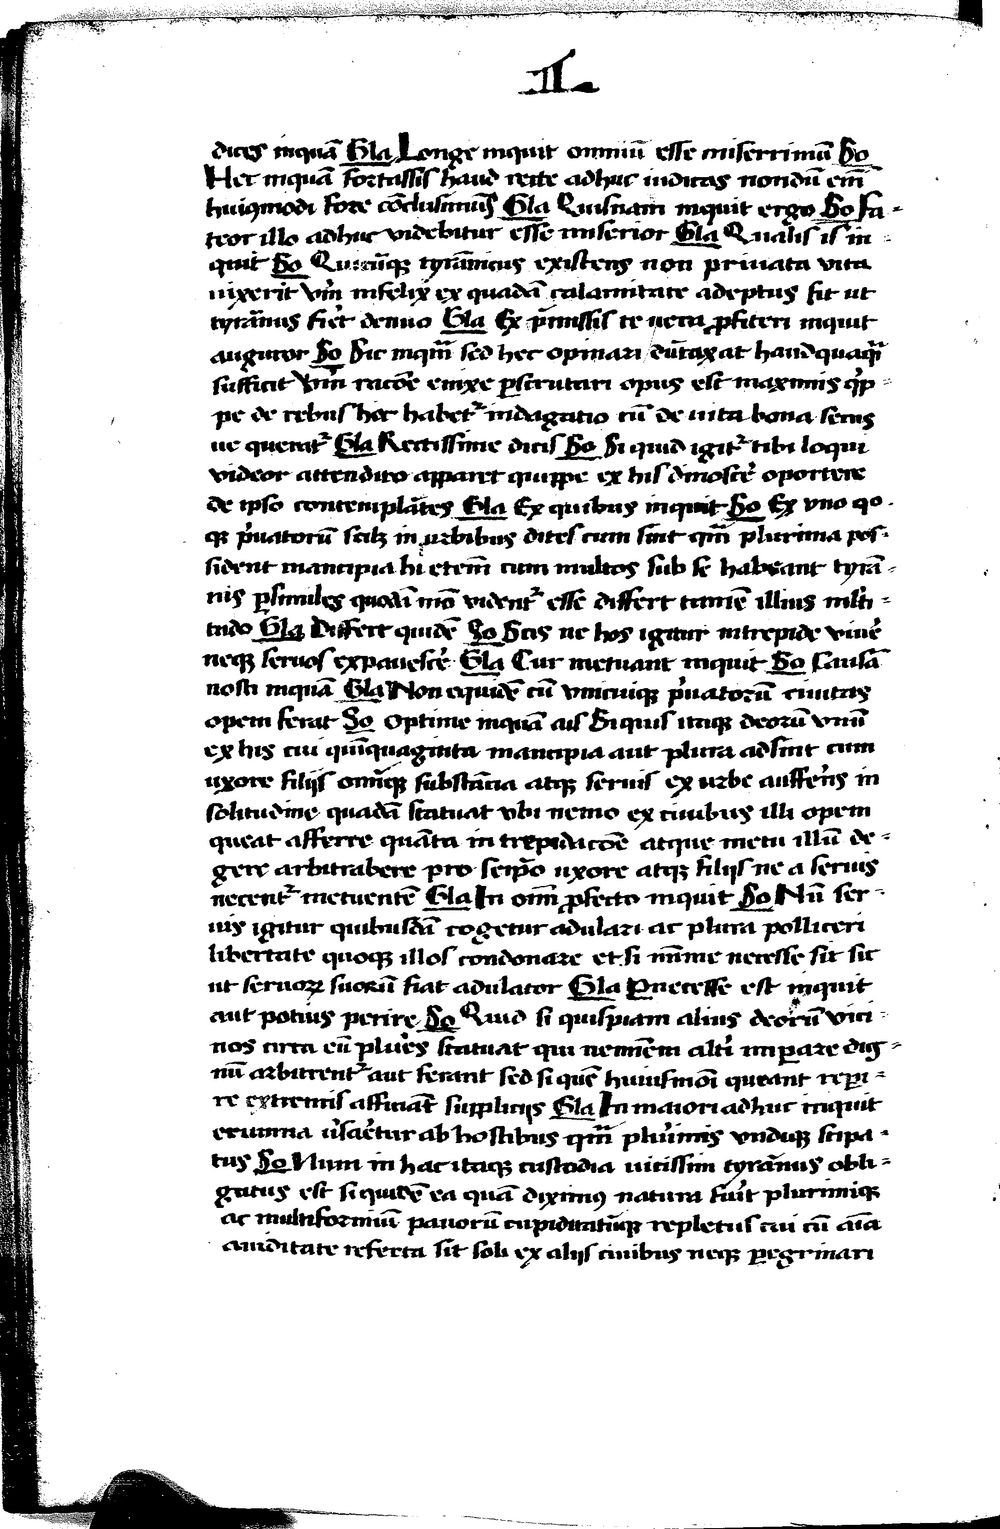 II
dices inquā Gla Longe inquit omniū esse miserrimū So
Hec inquā fortassis haud recte adhuc iudicas nondū em̄
huiqmodi fore cōclusimus Gla Quisnam inquit ergo So Fa-
teor illo adhuc videbitur esse miserior Gla Qualis is in-
quit So Quicūqꝫ tyrānicus existens non priuata vita
vixerit Vm̄ infelix ex quadā calamitate adeptus sit ut
tyrānus fier̄ denuo Gla Ex p̄missis te vera ꝓfiteri inquit
auguror So Sic inqm̄ sed hec opinari dūtaxat haudquaqȝ̄
sufficit Vm̄ racōe enixe ꝑscrutari opus est maximis qͥp-
pe de rebus hec habet᷑ indagatio cū de vita bona secus
ue querat᷑ Gla Rectissime dicis So Si quid igit᷑ tibi loqui
videor attendito apparet quippe ex his dīnoscer̄ oportere
de ipso contemplātes Gla Ex quibus inquit So Ex vno qo-
qꝫ pͥuatorū scilꝫ in urbibus dites cum sint qm̄ plurima pos-
sident mancipia hi etem̄ cum multos sub se habeant tyrā-
nis ꝑsimiles quodā mō vident᷑ esse differt tamē illius mlti-
tudo Gla Differt quidē So Scis ne hos igitur intrepide viuer̄
neqꝫ seruos expauescer̄ Gla Cur metuant inquit So Causā
nosti inquā Gla Non equidē cū vnicuiqꝫ pͥuatorū ciuitas
opem ferat So Optime inquā ais Si quis itaqꝫ deorū vnū
ex his cui quīquaginta mancipia aut plura adsint cum
uxore filijs omīqꝫ substācia atqꝫ seruis ex urbe aufferēs in
solitudine quadā statuat vbi nemo ex ciuibus illi opem
queat afferre quāta in trepidacōe atque metu illū de-
gere arbitrabere pro seip̄o uxore atqꝫ filijs ne a seruis
necent᷑ metuentē Gla In om̄ ꝓfecto inquit So Nū ser-
uis igitur quibusdā cogetur adulari ac plura polliceri
libertate quoqꝫ illos condonare et si mīme necesse sit sic
ut seruoꝝ suorū fiat adulator Gla Pnecesse est inquit
aut potius perire So Quid si quispiam alius deorū vici-
nos circa eū plures statuat qui neminem alti imperare dig-
nū arbitrent᷑ aut ferant sed si quē huiusmōi queant repi-
re extremis afficiāt supplicijs Gla In maiori adhuc inquit
erumna ūsaretur ab hostibus qm̄ plurimis vndiqꝫ stipa-
tus So Num in hac itaqꝫ custodia vitissim tyrānus obli-
gatus est siquidē ea quā diximꝰ natura fuīt plurimiqꝫ
ac multiformiū pauorū cupiditatūqꝫ repletus cui cū aīa
auiditate referta sit soli ex alijs ciuibus neqꝫ ꝑegrinari